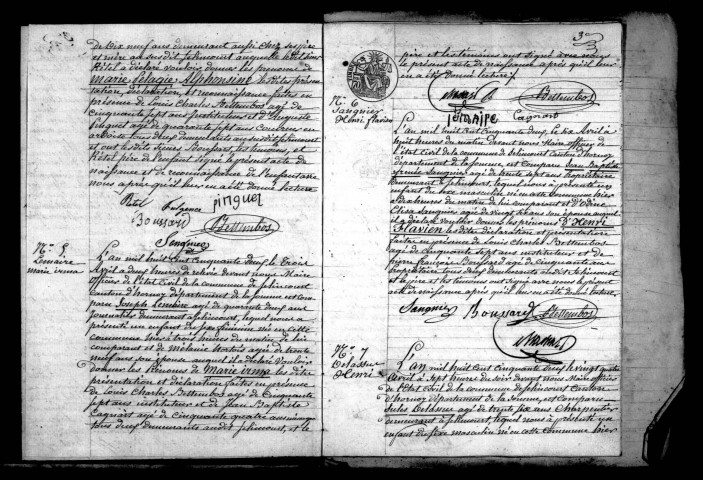 de dix neuf ans demeurant aussi chez ses père
et mère au susdit Selincourt auquel le dit Sieur
Rétel a déclaré vouloir donner les prénoms de
marie Pélagie Alphonsine les dites présen-
tation, déclaration, et reconnaissance faites en
présence de Louis Charles Bettembos agé de
cinquante sept ans instituteur et d'Auguste
pinguet agé de quarante sept ans
tous deux demeurants au susdit Selincourt
et ont les dits Sieurs
Rétel père de l'enfant signé le présent acte de
naissance et de reconnaissance de l'enfant avec
nous après qu'il leur en a été donné lecture
Rétel fulgence pinguet
Boussard Bettembos
Sangnier
N.° 5
Lemaire
marie irma
L'an mil huit Cent Cinquante deux le trois
Avril à deux heures de relevée devant nous Maire
officier de l'état Civil de la commune de Selincourt
Canton d'hornoy département de la Somme est com-
paru Joseph Lemaire agé de quarante deux ans
journalier demeurant à Selincourt, lequel nous a
présenté un enfant du sexe féminin né en cette
commune à trois heures du matin de lui
comparant et de Mélanie agée de trente
neuf ans son épouse auquel il a déclaré vouloir
donner les Prénoms de Marie irma les dites
présentation et déclaration faites en présence
de Louis Charles Bettembos agé de Cinquante
sept ans instituteur et de Jean Baptiste
Cagnart agé de Cinquante quatre ans
tous deux demeurants audit Selincourt, et le
3
père et les témoins ont signé avec nous
le présent acte de naissance après qu'il leur
en a été donné lecture
Bettembos
Lemaire Cagnart
N.° 6
Sangnier
Henri flavien
L'an mil huit cent cinquante deux, le six Avril à
huit heures du matin devant nous Maire officier de
l'état civil de la commune de Selincourt Canton d'hornoy
département de la Somme, est comparu Jean Baptiste
Sangnier agé de trente sept ans propriétaire
demeurant à Selincourt, lequel nous a présenté un
enfant du sexe masculin né en cette Commune hier
à dix heures du matin de lui comparant et
Elisa Sangnier agée de vingt six ans son épouse auquel
il a déclaré vouloir donner les prénoms D'Henri
Flavien les dites déclaration et présentation
faites en présence de Louis Charles Bettembos
agé de cinquante sept ans instituteur et de
pierre françois Boussard agé de cinquante ans
propriétaire tous deux demeurants audit Selincourt
et le père et les témoins ont signé avec nous le présent
acte de naissance après qu'il leur en a été donné lecture.
Sangnier Boussard Bettembos
N.° 7
Delassus
Henri
L'an mil huit Cent Cinquante deux, le vingt quatre
Avril à sept heures du soir devant nous Maire officier
de l'état Civil de la commune de Selincourt Canton
d'hornoy département de la Somme, est Comparu
Jules Delassus agé de trente six ans Charpentier
demeurant à Selincourt, lequel nous a présenté un
enfant du sexe masculin né en cette commune hier